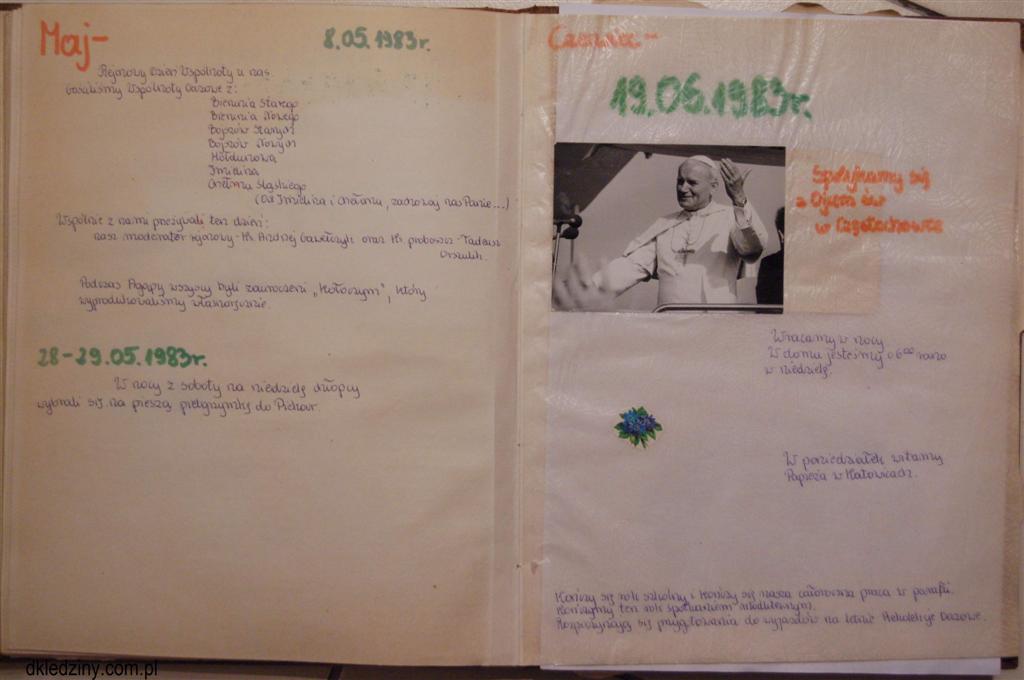 Maj-
8.05.1983r.
Rejonowy Dzień Wspólnoty u nas.
Gościliśmy Wspólnoty Oazowe z:
Bierunia Starego
Bierunia Nowego
Bojszów Starych
Bojszów Nowych
Hołdunowa
Imielina
Chełmu Śląskiego
(Od Imielina i Chełmu, zachowaj nas Panie...)
Wspólnie z nami przeżywali ten dzień:
nasz moderator rejonowy - Ks. Andrzej Gawełczyk oraz Ks. proboszcz - Tadeusz
Orszulik.
Podczas Agapy wszyscy byli zauroczeni „Kołoczym", który
wyprodukowaliśmy własnoręcznie.
28-29.05.1983r.
W nocy z soboty na niedzielę chłopcy
wybrali się na pieszą pielgrzymkę do Piekar.
Czerwiec-
19.06.1983r.
Spotykamy się
z Ojcem św
w Częstochowie
Wracamy w nocy
W domu jesteśmy o 6⁰⁰ rano
w niedzielę.
W poniedziałek witamy
Papieża w Katowicach.
Kończy się rok szkolny i kończy się nasza całoroczna praca w parafii.
Kończymy ten rok spotkaniem modlitewnym.
Rozpoczynają się przygotowania do wyjazdów na letnie Rekolekcje Oazowe.
dkledziny.com.pl